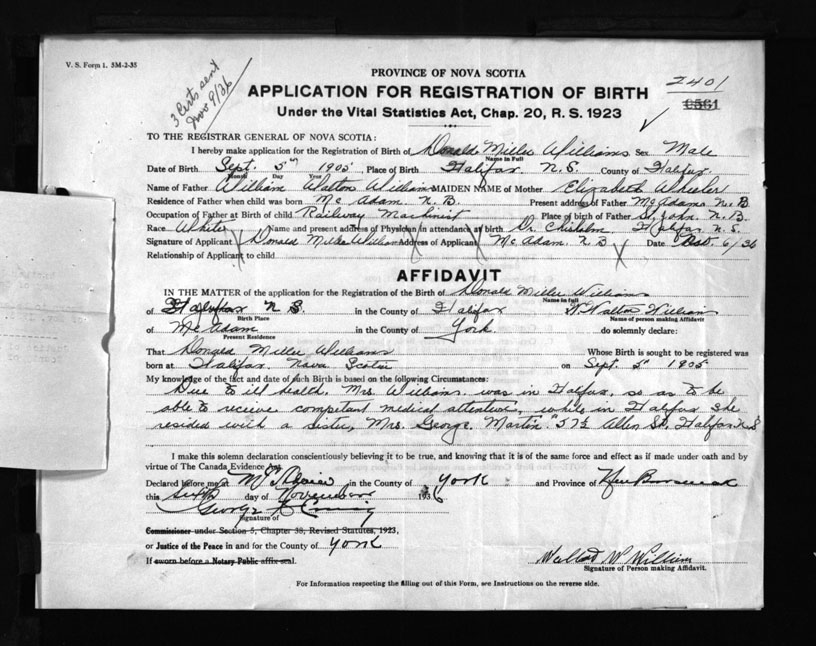 V. S. Form 1. 5M-2-35
3 Certs sent
Nov 9/36
PROVINCE OF NOVA SCOTIA
2401
APPLICATION FOR REGISTRATION OF BIRTH
Under the Vital Statistics Act, Chap. 20, R. S. 1923
TO THE REGISTRAR GENERAL OF NOVA SCOTIA:
I hereby make application for the Registration of Birth of Donald Miller Williams Sex Male
Name in Full
Date of Birth Sept. 5th 1905, Place of Birth Halifax N.S. County of Halifax
Month Day Year
Name of Father William Walton Williams MAIDEN NAME of Mother Elizabeth Wheeler
Residence of Father when child was born Mc Adam N.B. Present address of Father McAdam N.B
Occupation of Father at Birth of child Railway Machinist Place of birth of Father St. John N.B.
Race White Name and present address of Physician in attendance at birth Dr. Chisholm, Halifax N.S.
Signature of Applicant Donald Miller Williams Address of Applicant McAdam N.B Date 6/36
Relationship of Applicant to child
AFFIDAVIT
IN THE MATTER of the application for the Registration of the Birth of Donald Miller Williams
Name in full
of Halifax N S. in the County of Halifax W Walton William
Birth Place Name of person making Affidavit
of McAdam in the County of York do solemnly declare:
Present Residence
That Donald Miller Williams Whose Birth is sought to be registered was
born at Halifax Nova Scotia on Sept. 5th 1905
My knowledge of the fact and date of such Birth is based on the following Circumstances:
Due to ill health, Mrs. Williams was in Halifax, so as to be
able to receive competant medical attention, while in Halifax she
resided with a sister, Mrs. George Martin 57½ Allen St, Halifax N S
I make this solemn declaration conscientiously believing it to be true, and knowing that it is of the same force and effect as if made under oath and by
virtue of The Canada Evidence Act.
Declared before me at in the County of York and Province of New Brunswick
this sixth day of November 1936
George
Signature of
Commissioner under Section 5, Chapter 38, Revised Statutes, 1923,
or Justice of the Peace in and for the County of York
If sworn before a Notary Public affix seal.
Signature of Person making Affidavit.
For Information respecting the filling out of this Form, see Instructions on the reverse side.